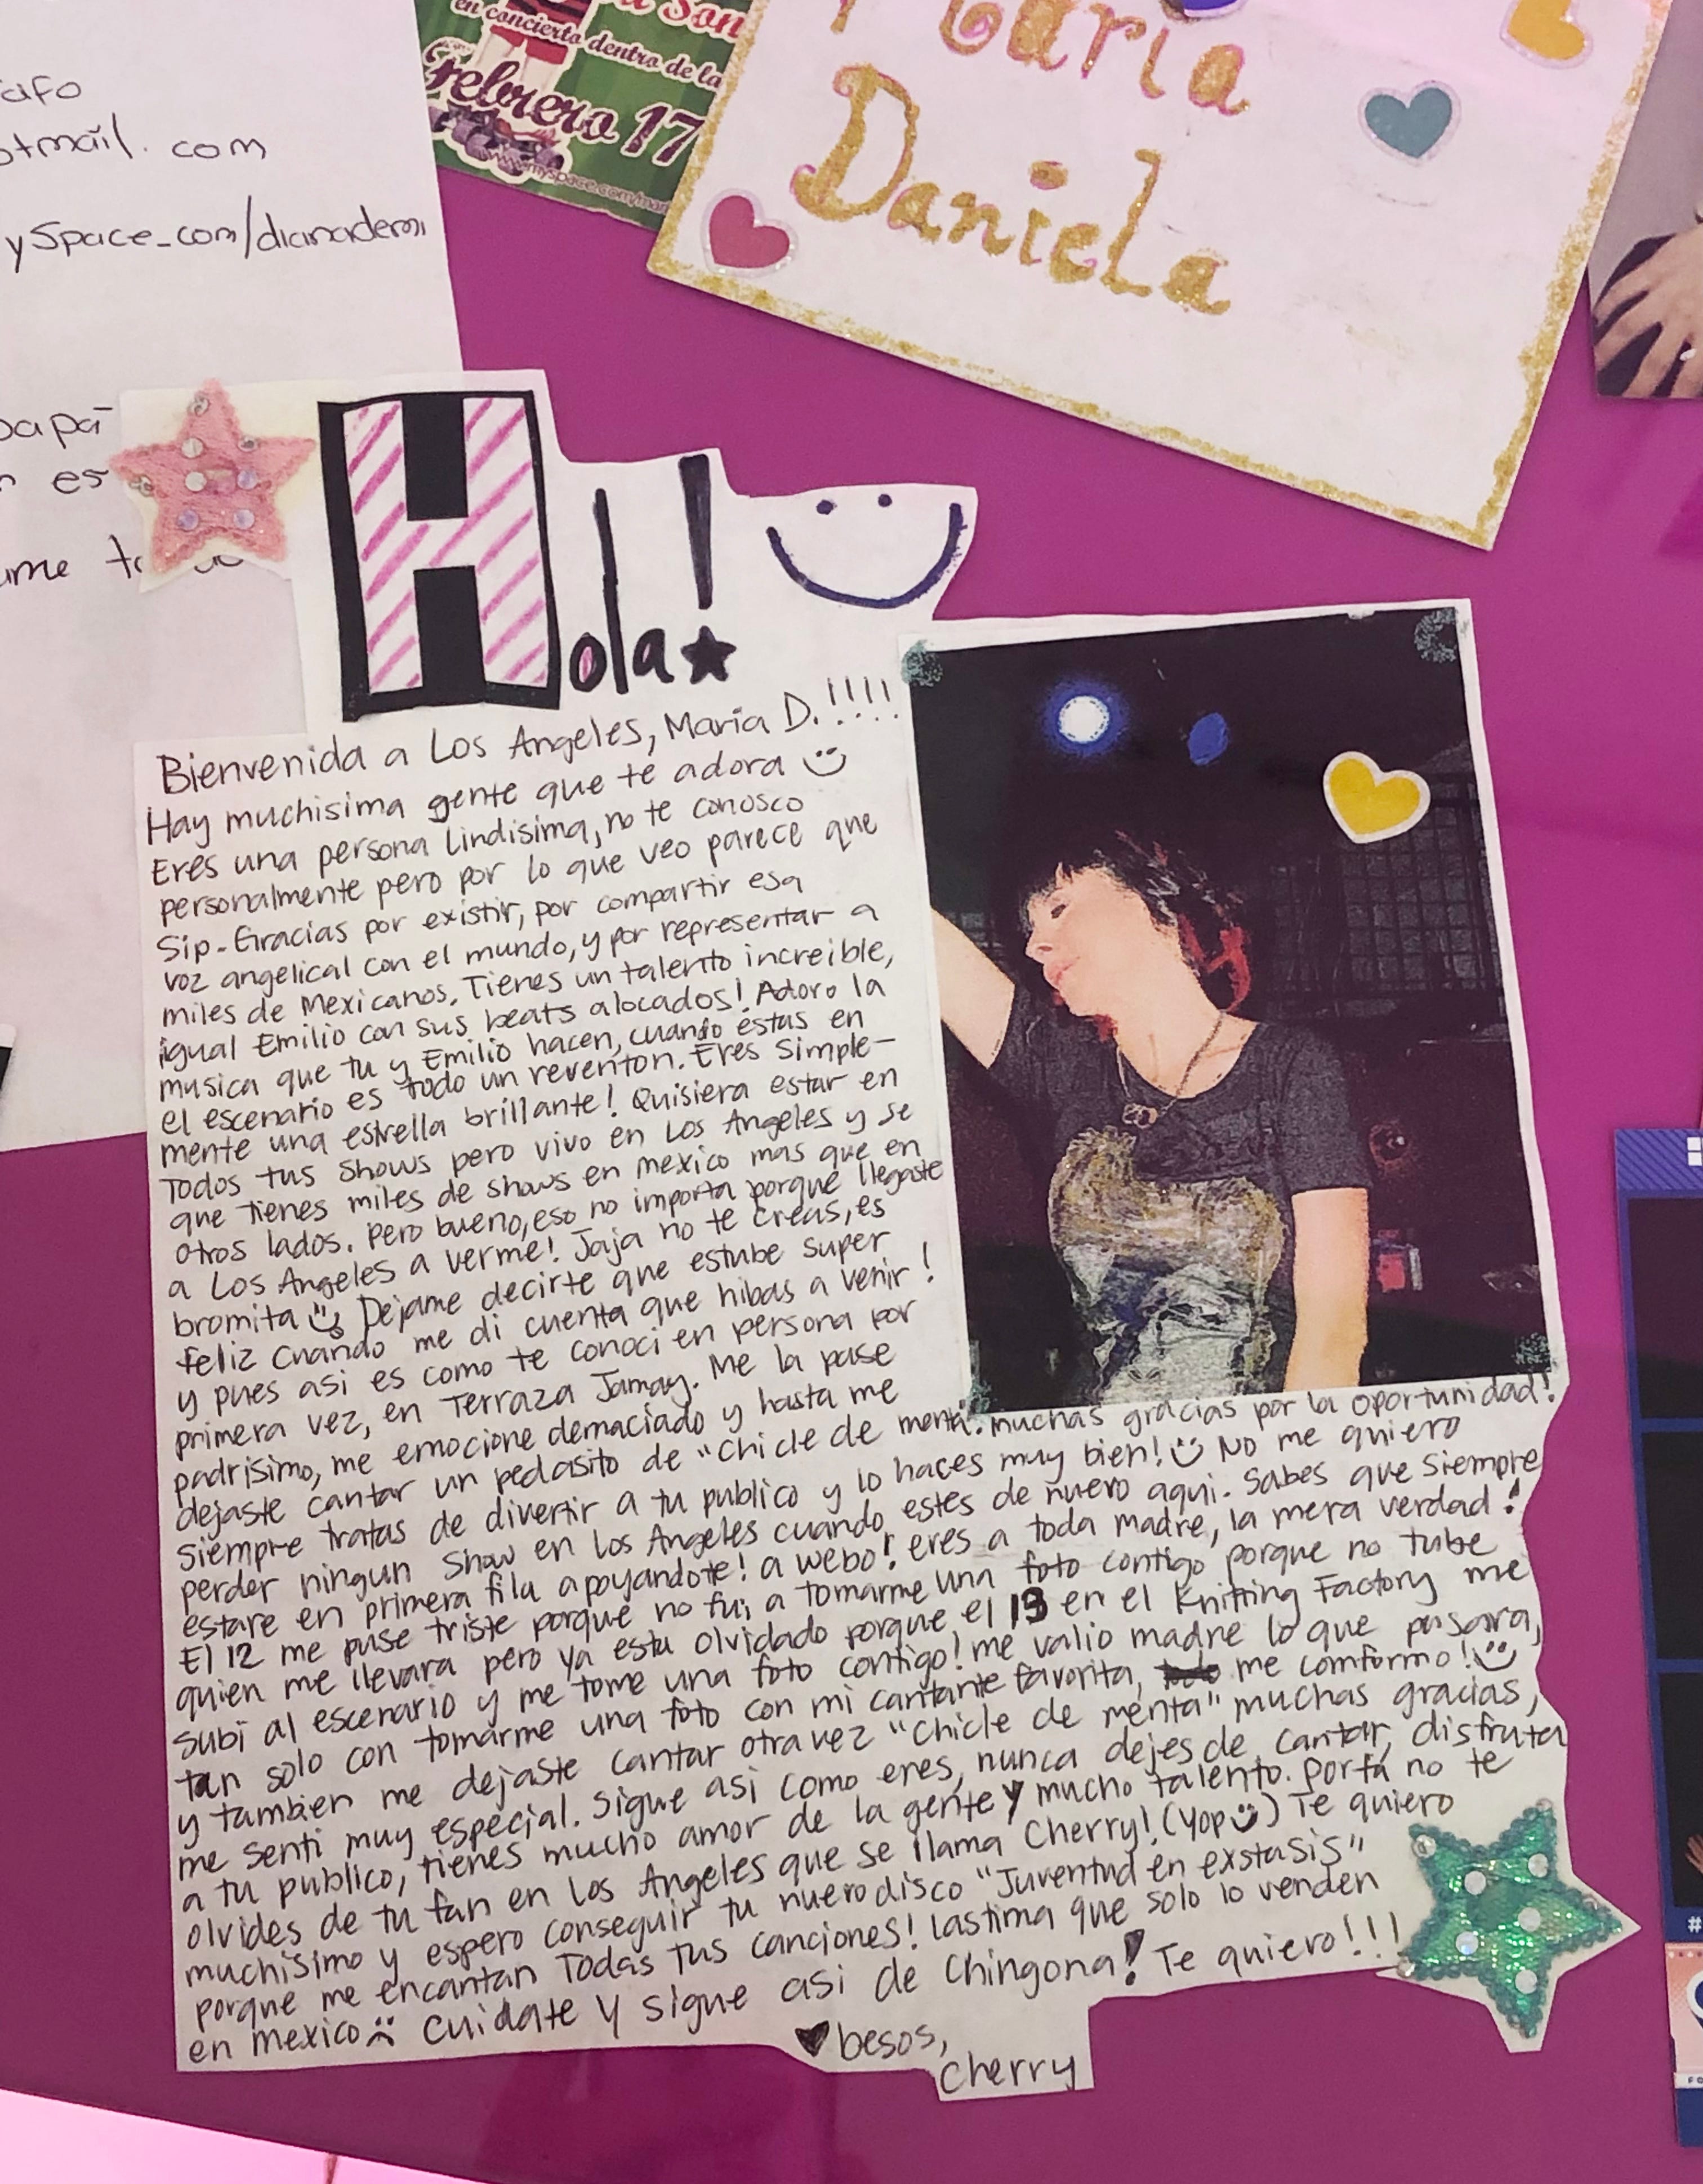 a Son
en concierto dentro de la
febrero 17
www.myspace.com/mar
María
Daniela
afo
otmail. com
yspace_com/dianademi
papá
n es
ame to
Hola!
Bienvenida a Los Angeles, Maria D.!!!!
Hay muchisima gente que te adora
Eres una persona lindisima, no te conosco
personalmente pero por lo que veo parece que
sip. Gracias por existir, por compartir esa
voz angelical con el mundo, y por representar a
miles de Mexicanos. Tienes un talento increible,
igual Emilio con sus beats alocados! Adoro la
musica que tu y Emilio hacen, cuando estas en
el escenario es todo un reventon. Eres simple-
mente una estrella brillante! Quisiera estar en
Todos tus shows pero vivo en Los Angeles y se
que tienes miles de shows en mexico mas que en
otros lados. Pero bueno, eso no importa porque llegaste
a Los Angeles a verme! Jaja no te creas, es
bromita Dejame decirte que estube super
feliz cuando me di cuenta que hibas a venir!
y pues asi es como te conoci en persona por
primera vez, en Terraza Jamay. Me la pase
padrisimo, me emocione demaciado y hasta me
dejaste cantar un pedasito de "Chicle de menta". muchas gracias por la oportunidad!
Siempre tratas de divertir a tu publico y lo haces muy bien! No me quiero
perder ningun show en los Angeles cuando estes de nuevo aqui. Sabes que siempre
estare en primera fila apoyandote! a webo! eres a toda madre, la mera verdad!
El 12 me puse triste porque no fui a tomarme una foto contigo porque no tube
quien me llevara pero ya esta olvidado porque el 13 en el Knitting Factory me
subi al escenario y me tome una foto contigo! me valio madre lo que pasara,
tan solo con tomarme una foto con mi cantante favorita, me comformo!
y tambien me dejaste cantar otra vez "Chicle de menta" muchas gracias,
me senti muy especial. Sigue asi como eres, nunca dejes de cantar, disfruta
a tu publico, tienes mucho amor de la gente y mucho talento. Porfa no te
olvides de tu fan en Los Angeles que se llama Cherry! (Yop) Te quiero
muchisimo y espero conseguir tu nuevo disco "Juventud en exstasis"
porque me encantan Todas tus canciones! lastima que solo lo venden
en mexico Cuidate y sigue asi de Chingona! Te quiero!!!
besos,
Cherry